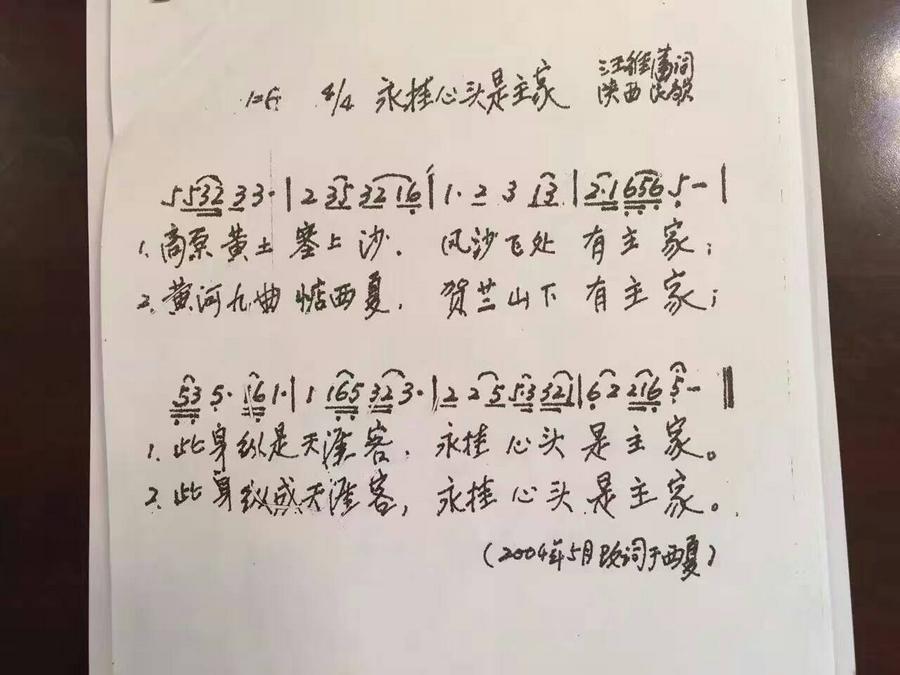 1=F 4/4 永挂心头是主家 汪维藩词
陕西民歌
5 5532 3 3· | 2 35 32 16 | 1· 2 3 13 | 2·1 656 5 - |
1. 高原黄土塞上沙, 风沙飞处 有主家;
2. 黄河九曲恋西夏, 贺兰山下 有主家;
53 5· 16 1· | 1 165 32 3· | 2 2 5 5·3 321 | 6 2 216 5 - ‖
1. 此身纵是天涯客, 永挂心头是主家。
2. 此身纵成天涯客, 永挂心头是主家。
(2004年5月改词于西夏)